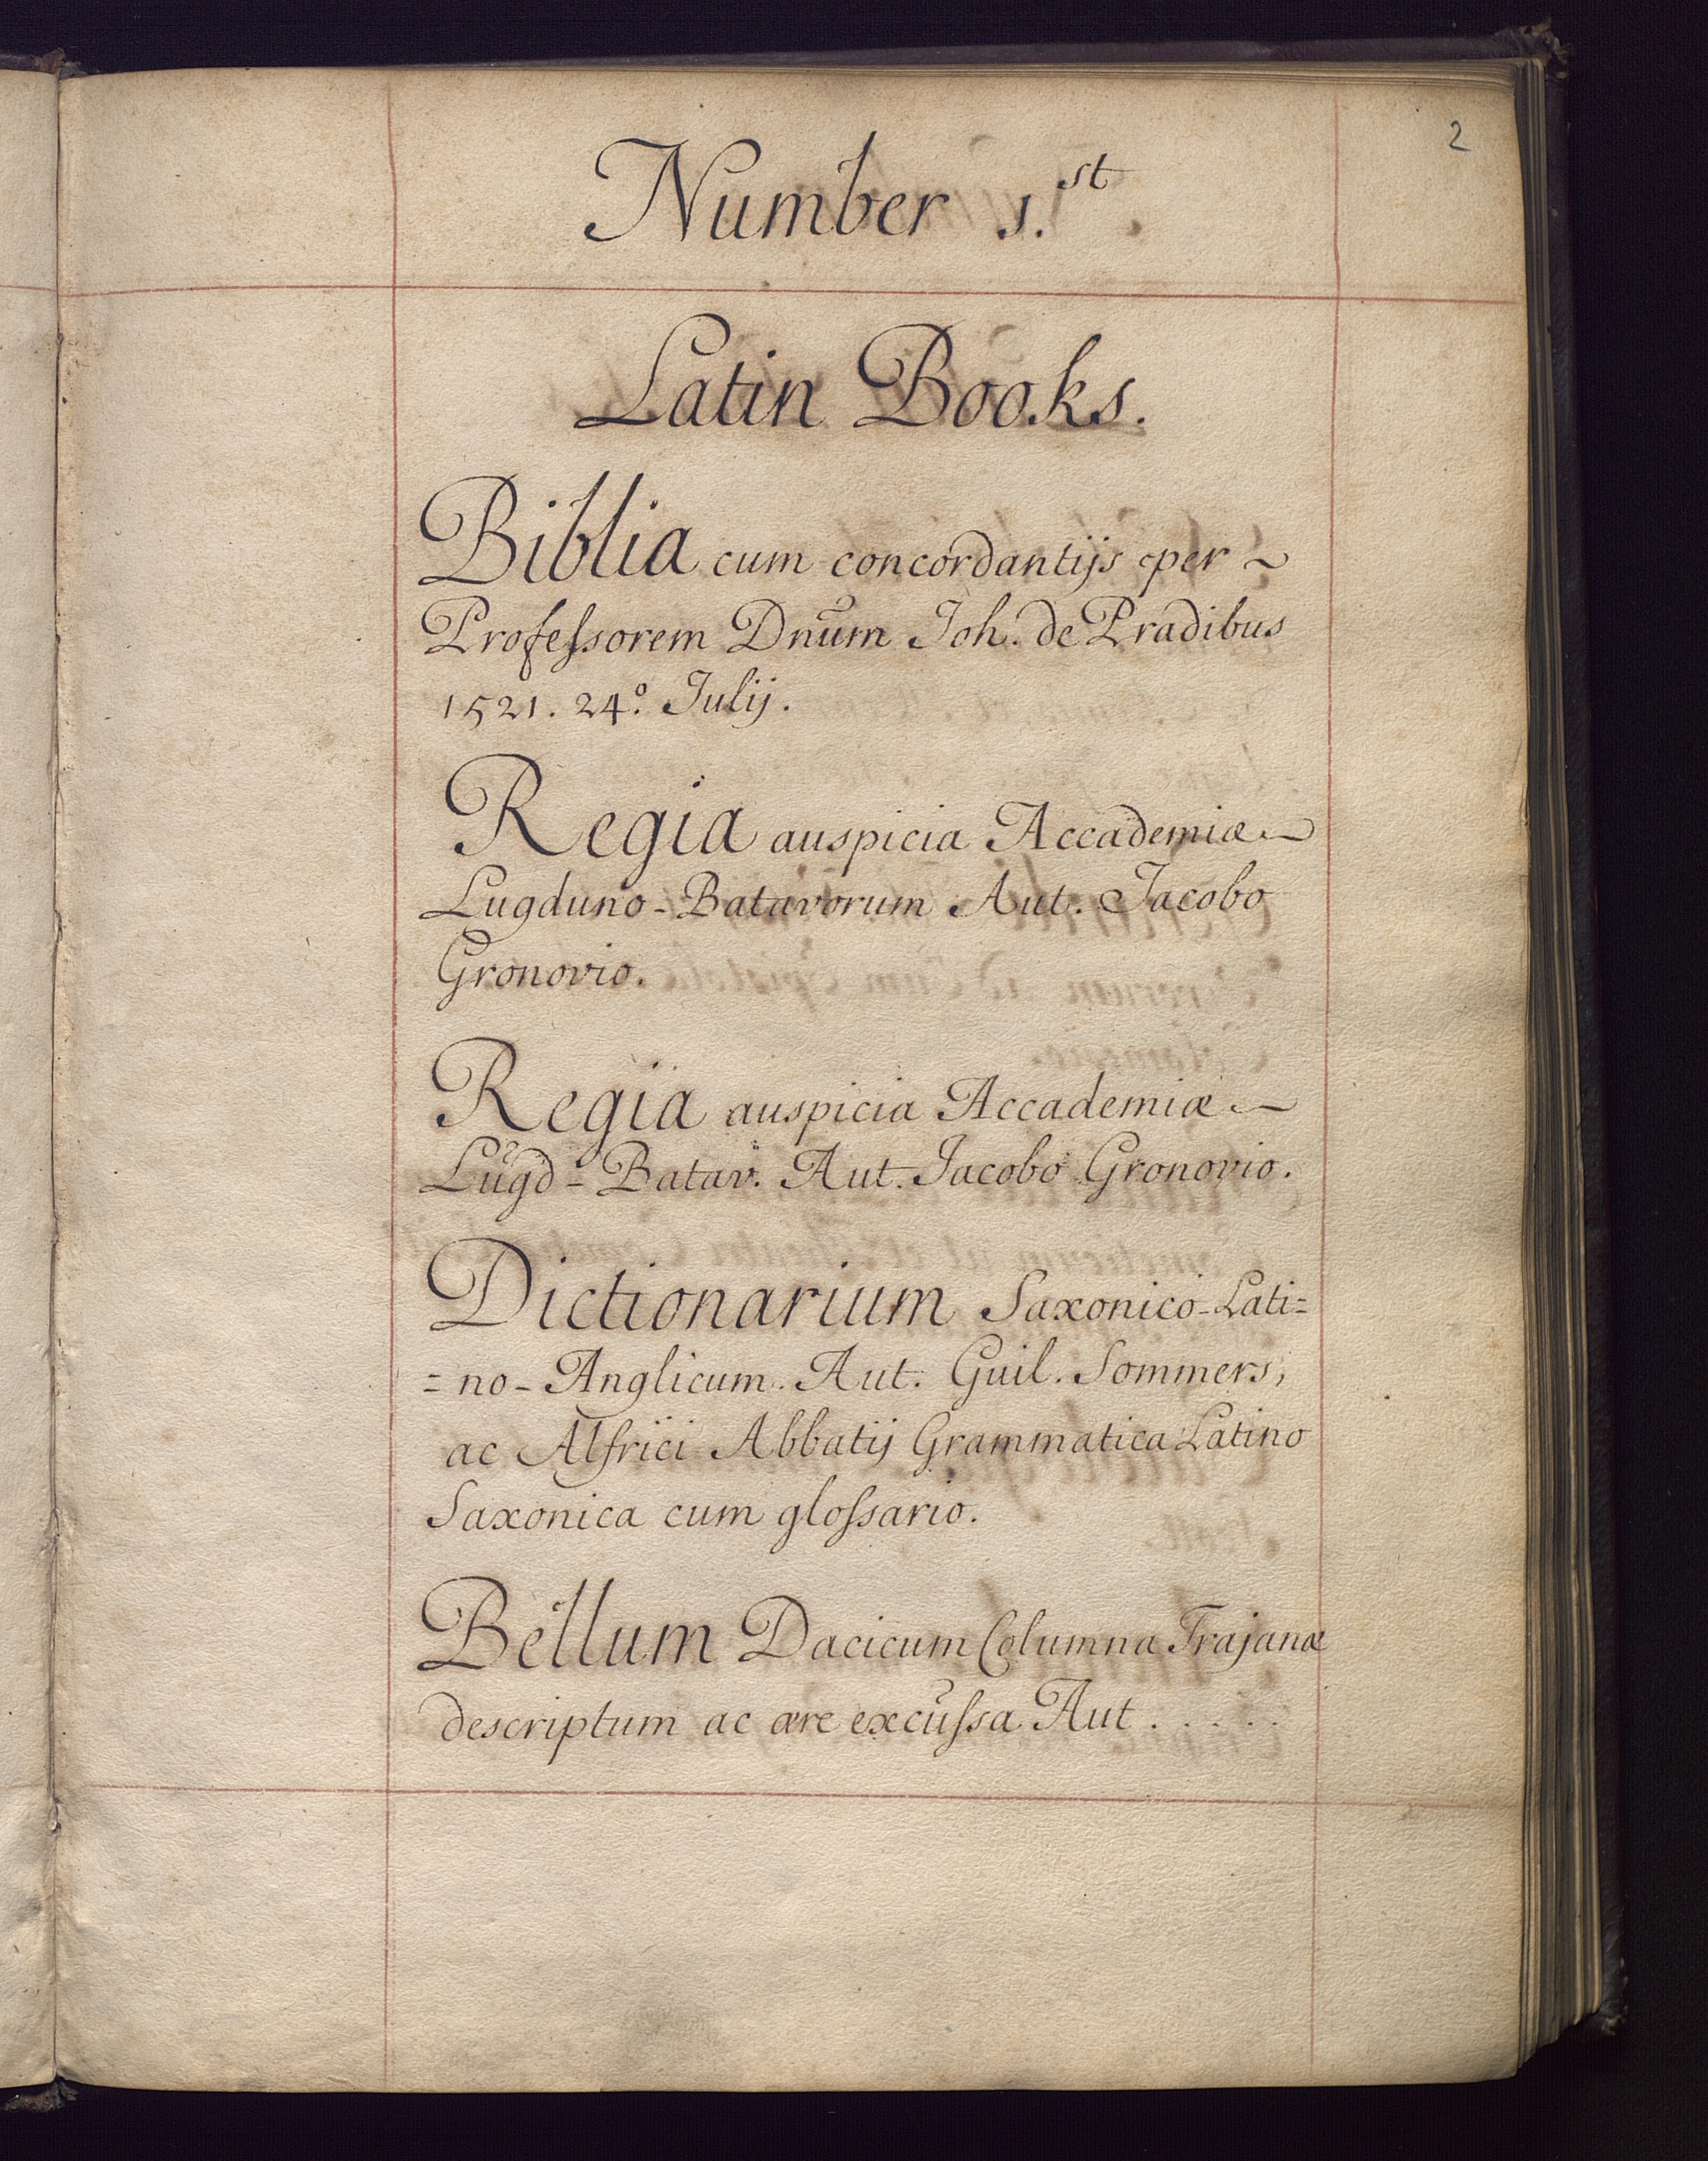 2
Number 1.st
Latin Books.
Biblia cum concordantijs per ~
Professorem Dnūm Joh. de Pradibus
1521. 24.o Julij.
Regia auspicia Accademiæ ~
Lugduno-Batavorum Aut. Jacobo
Gronovio.
Regia auspicia Accademiæ ~
Lugd-Batav. Aut. Jacobo Gronovio.
Dictionarium Saxonico-Lati=
=no-Anglicum. Aut. Guil. Sommers,
ac Alfrici Abbatij Grammatica Latino
Saxonica cum glossario.
Bellum Dacicum Columna Trajanæ
descriptum ac ære excussa Aut . . . . .